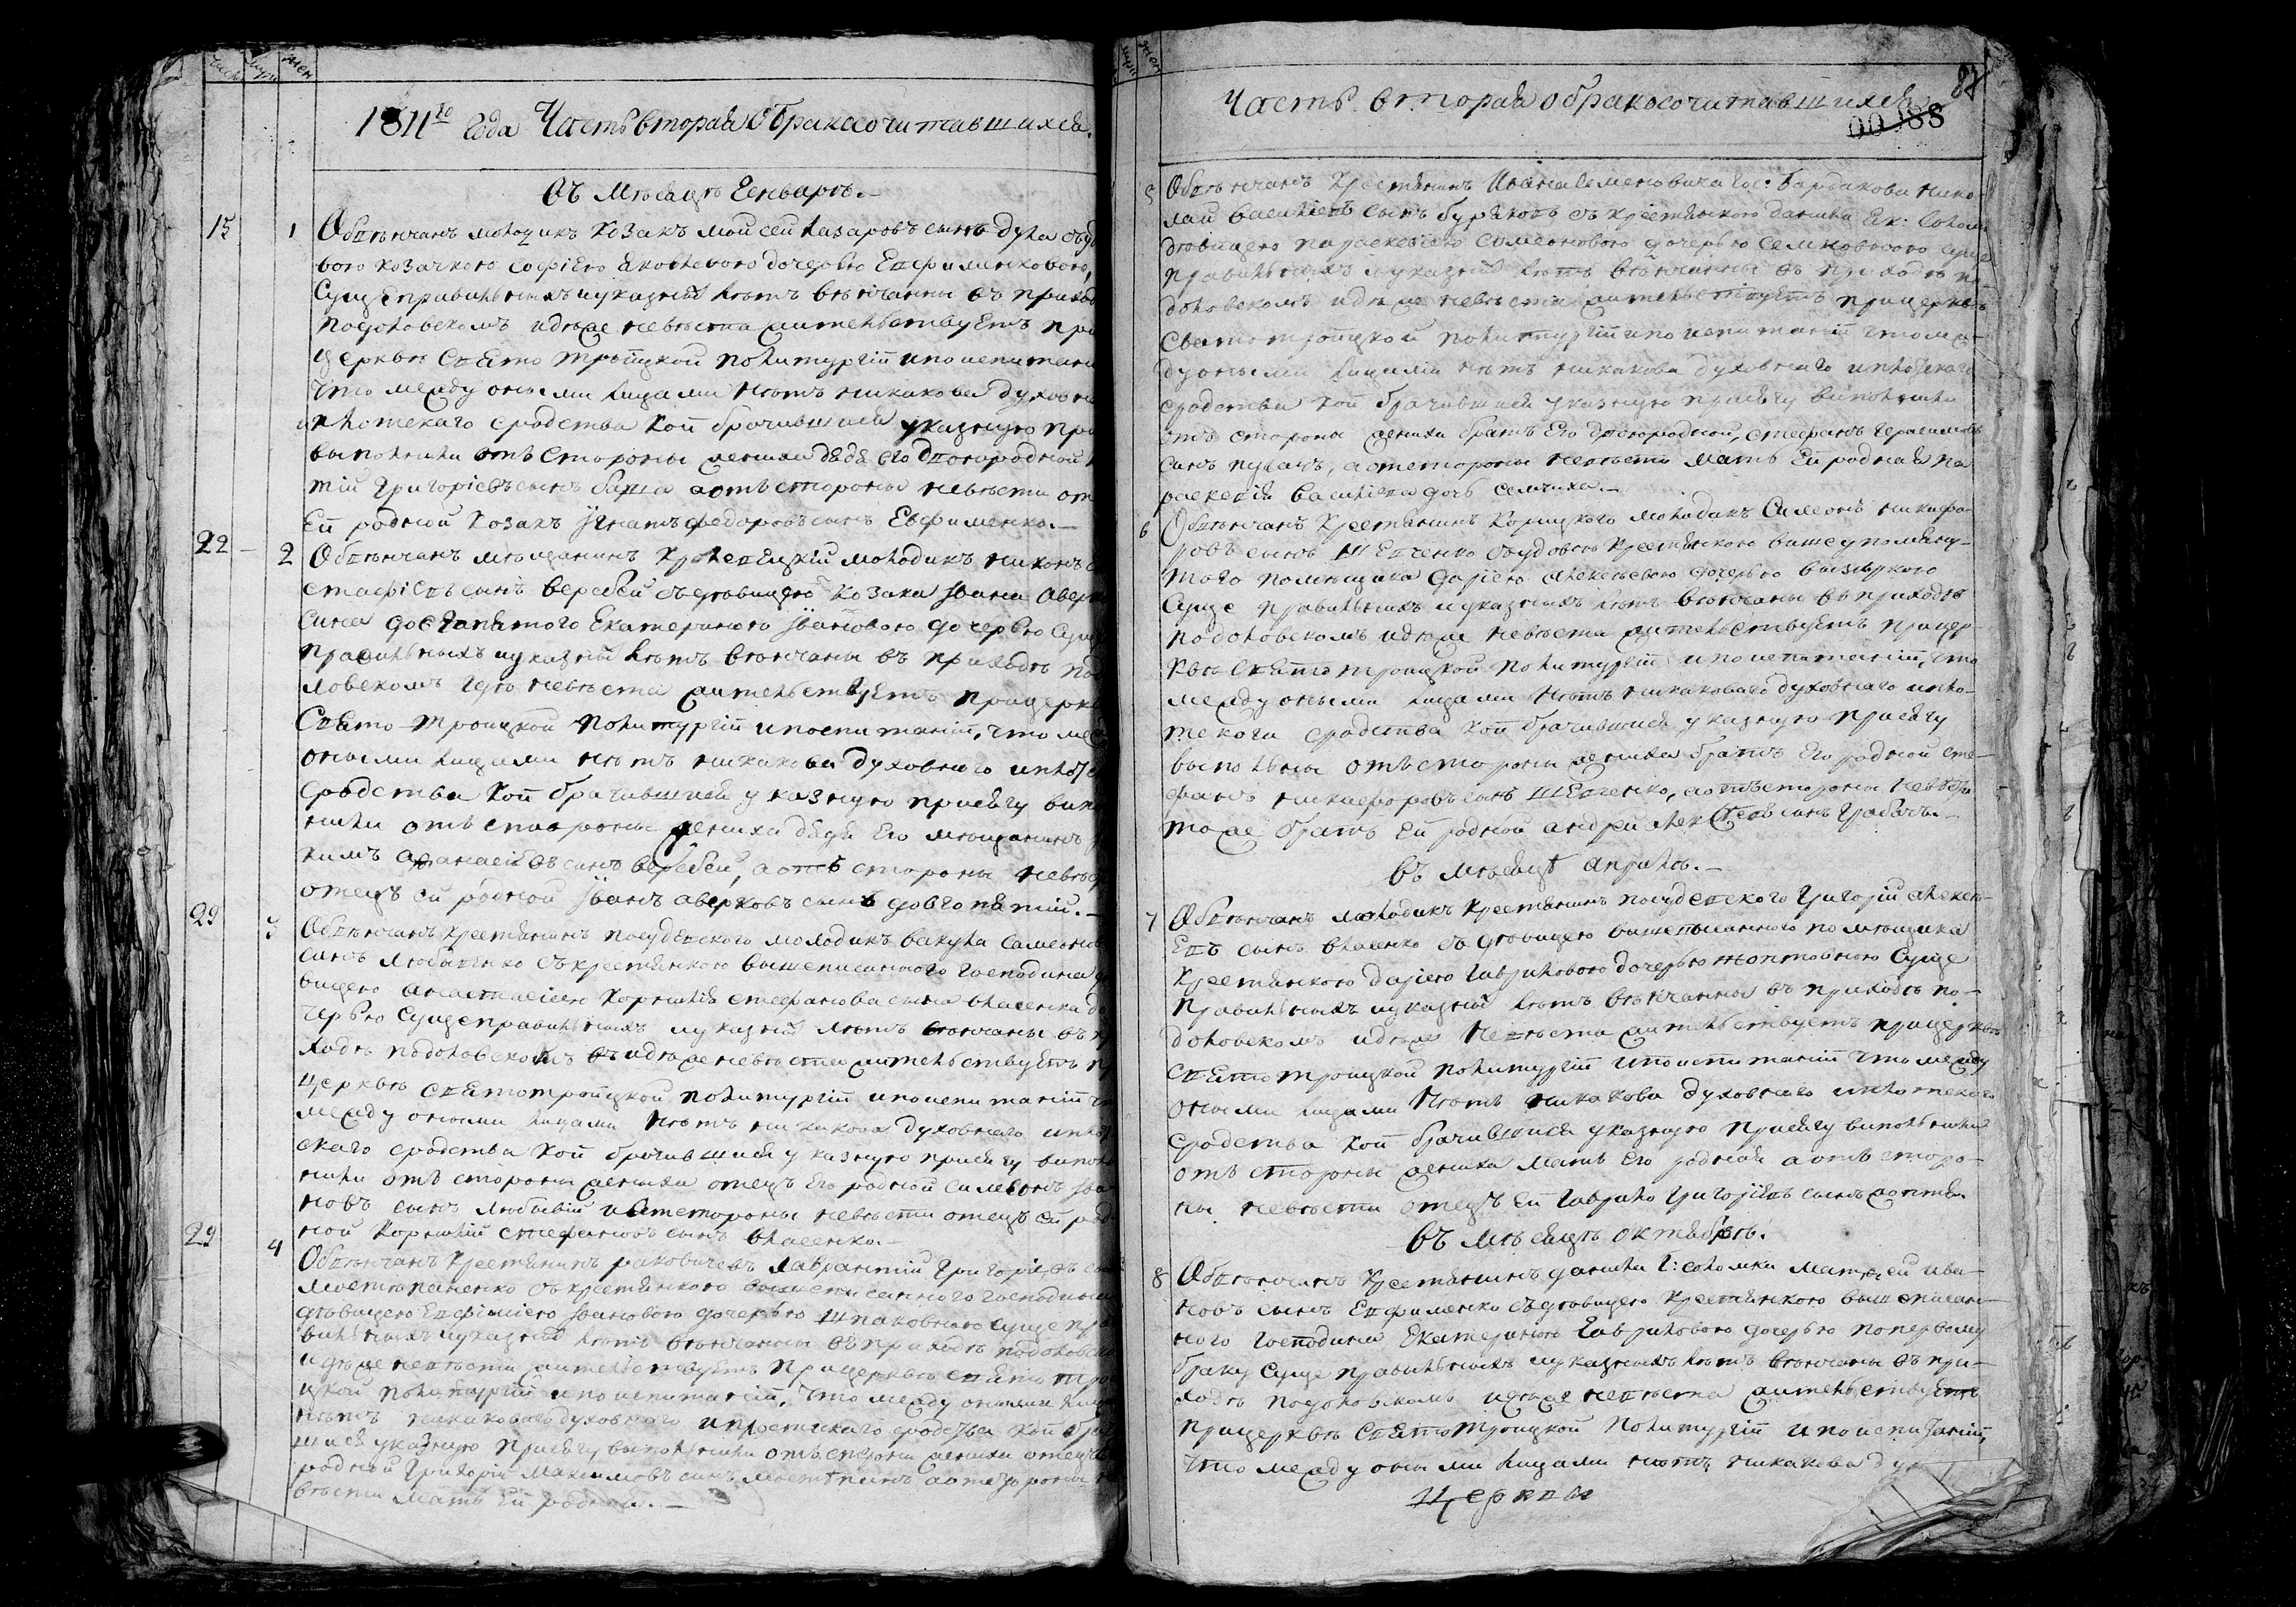 число мужс жен
1811го года Часть вторая О бракосочитавшихся.
Въ Мѣсяцѣ Генварѣ.
15 1 Обвѣнчанъ молодикъ Козакъ Мойсей Лазаровъ сынъ Дука съ
вою козачкою Софiею Яковлевою дочерью Евфименковою,
Суще правильныхъ и указныхъ лѣтъ вѣнчанны въ приход
подоловскомъ идѣже невѣста жительствуетъ при
церквѣ Свято Тройцкой по литургiи и по испитани
Что между оными лицами нѣтъ никакова духовна
и плотскаго сродства кои брачившися указную при
выполнили отъ стороны жениха дядя его двоюродной
тiй Григорiевъ сынъ а отъ стороны невѣсти от
Ей родной Козакъ Игнатъ Федоровъ сынъ Евфименко.
22 2 Обвѣнчанъ мѣщанинъ молодикъ Никонъ
стафiевъ сынъ Веребей съ дѣвицею Козака Iвана Аверк
сина Довгапятого Екатериною Iвановою дочерью Сущ
правильныхъ и указныхъ лѣтъ вѣнчаны въ приходѣ под
ловскомъ идѣ невѣста жительствуетъ при церкв
Свято Троицкой по литургiи и по испитанiи, что меж
оными лицами нѣтъ никакова духовнаго и плот
сродства кои брачившися указную присягу випо
нили отъ стороны жениха дядя Его мѣщанинъ
кимъ Афанасiевъ синъ Веребей, а отъ стороны невѣс
отецъ ей родной Iванъ Аверковъ сынъ Довгопятiй.
29 3 Обвѣнчанъ крестянинъ Посудевского молодикъ Вакула Самеонов
синъ Любиенко съ крестянкою вышеписанного господина д
вицею Анастасiею Корнилiя Стефанова сына Власенка до
черью Суще правильныхъ и указныхъ лѣтъ вѣнчаны въ пр
ходѣ подоловскомъ идѣже невѣста жительствуетъ пр
Церквѣ Святотройцкой по литургiи и по испитанiи чт
между оными лицами нѣтъ никакова духовнаго и плот
скаго сродства кои брачившися указную присягу випол
нили отъ стороны жениха отецъ Его родной Симеонъ Iва
новъ сынъ Любивiй и отъ стороны невѣсти отецъ ей род
ной Корнилiй Стефановъ сынъ Власенко.
29 4 Обвѣнчанъ крестянинъ Лаврантiй Григорiевъ сы
съ крестянкою вышеписанного господина
дѣвицею Евфимiею Iвановою дочерью Шпаковною Суще пра
вильныхъ и указныхъ лѣтъ вѣнчанны въ приходѣ подоловско
идѣже невѣста жительствуетъ при церквѣ Свято Тро
ицкой по литургiи и по испитанiи, что между оными лиц
нѣтъ никаковагодуховнаго и плотскаго сродства кои бра
шися указную присягу, выполнили отъ стороны жениха отецъ
родной Григорiй Максимовъ синъ а отъ стороны не
вѣсти мать Ей родная.
Часть вторая о бракосочитавшихся
87
00088
5 Обвѣнчанъ Крестянинъ Ивана Семеновича Гос: Бардакова Нико
лай Василiевъ сынъ Буряковъ съ крестянкою Данила Як: Солом
дѣвицею Параскевiею Симеоновою дочерью Семковною сущ
правильныхъ и указныхъ лѣтъ вѣнчанны въ приходѣ по
доловскомъ идѣже невѣста жительствуетъ при церквѣ
Святотройцкой по литургiи и по испитанiи что меж
ду оными лицами нѣтъ никакова духовнаго и плотскаго
сродства кои брачившися указную присягу виполнили
отъ стороны жениха братъ Его двоюродной, Стефанъ Герасимовъ
синъ Пукачъ, а отъ стороны невѣсти мать Ей родная Па
раскевiя Василiева дочь Семчиха.
6 Обвѣнчанъ Крестянинъ Корицкого молодикъ Симеонъ Никифо
ровъ сынъ Шевченко съ удовою крестянкою вишеупомяну
того помѣщика Дарiею Алексѣевою дочерью
Суще правильныхъ и указныхъ лѣтъ вѣнчаны въ приходѣ
подоловскомъ идѣже невѣста жительствуетъ при цер
квѣ Святотроицкой по литургiи и по испитанiи, что
между оными лицами нѣтъ никаковаго духовнаго и пло
тскаго сродства кои брачившися указную присягу
выполнены отъ стороны жениха братъ Его родной Сте
фанъ Никифоровъ сынъ Шевченко, а отъ стороны невѣсти
тоже братъ Ей родной Андрей Алексѣевъ синъ Грабачъ.
Въ мѣсяцѣ Априлѣ.
7 Обвѣнчанъ молодикъ крестянинъ Посудевского Григорiй Алексѣ
евъ сынъ Власенко съ дѣвицею вишеписанного помѣщика
крестянкою Дарiею Гавриловою дочерью Суще
правильныхъ и указныхъ лѣтъ вѣнчанны въ приходѣ по
доловскомъ идѣже невѣста жительствуетъ при церквѣ
Святотроицкой по литургiи и по испитанiи что между
оными лицами нѣтъ никакова духовнаго и плотскаго
сродства кои брачившися указную присягу виполнили
отъ стороны жениха мать Его родная а отъ сторо
ны невѣсти отецъ Ей Гаврило Григорiевъ сынъ
Въ мѣсяцѣ октябрѣ.
8 Обвѣнчанъ Крестянинъ Данила Г: Соломки Матвѣй Ива
новъ сынъ Евфименко съ дѣвицею крестянкою вышеписан
ного господина Екатериною Гавриловою дочерью по первому
браку Суще правильныхъ и указныхъ лѣтъ вѣнчаны въ при
ходѣ подоловскомъ идѣже невѣста жительствуетъ
при церквѣ Святотроицкой по литургiи и по испитанiи,
что между оными лицами нѣтъ никакова ду
Церкви